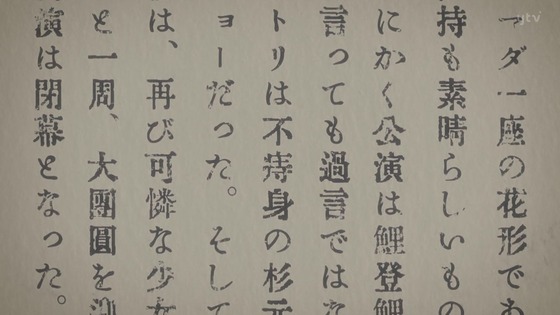 マダ一座の花形であ
持も素晴らしいもの
にかく公演は鯉登鯉
言っても過言ではな
トリは不痔身の杉元
ョーだった。そして
は、再び可憐な少女
と一周、大團圓を
演は閉幕となった。
ytv